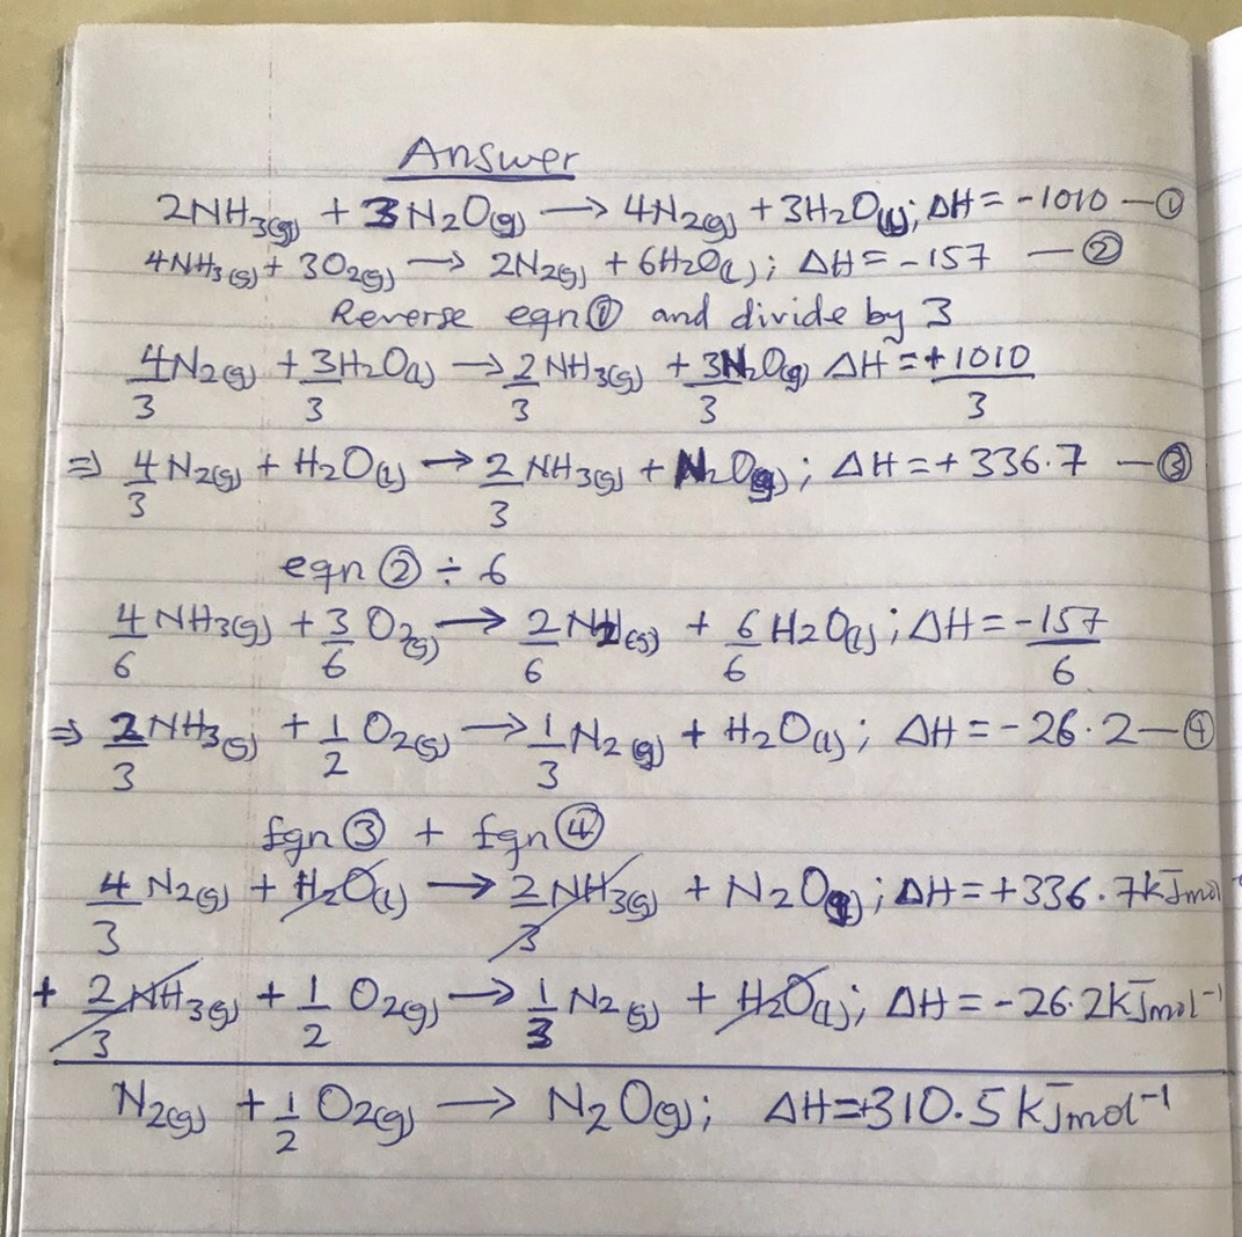 Answer
2NH3(g) + 3N2O(g) → 4N2(g) + 3H2O(l); ΔH = -1010 — ①
4NH3(g) + 3O2(g) → 2N2(g) + 6H2O(l); ΔH = -157 — ②
Reverse eqn① and divide by 3
4/3 N2(g) + 3/3 H2O(l) → 2/3 NH3(g) + 3/3 N2O(g) ΔH = +1010/3
⇒ 4/3 N2(g) + H2O(l) → 2/3 NH3(g) + N2O(g); ΔH = +336.7 — ③
eqn② ÷ 6
4/6 NH3(g) + 3/6 O2(g) → 2/6 N2(g) + 6/6 H2O(l); ΔH = -157/6
⇒ 2/3 NH3(g) + 1/2 O2(g) → 1/3 N2(g) + H2O(l); ΔH = -26.2 — ④
Eqn③ + Eqn④
4/3 N2(g) + H2O(l) → 2/3 NH3(g) + N2O(g); ΔH = +336.7kJmol⁻
+ 2/3 NH3(g) + 1/2 O2(g) → 1/3 N2(g) + H2O(l); ΔH = -26.2kJmol⁻¹
N2(g) + 1/2 O2(g) → N2O(g); ΔH=+310.5 kJmol⁻¹